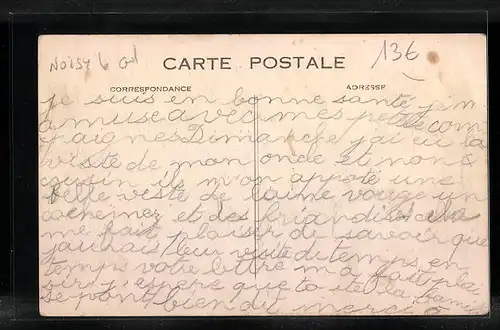 NOISY le Gd
13€
CARTE POSTALE
CORRESPONDANCE
ADRESSE
je suis en bonne santé j'em
amuse avec mes petite com
paignes Dimanche j'ai eu la
viste de mon oncle et mon
cousin ils m'on apporté une
belle veste de laine rouge un
cachenez et des friandises
me fait plaisir de savoir que
j'aurais leur visite de temps en
temps votre lettre m'a fait plai
sir j'espere que la
se bien du merci